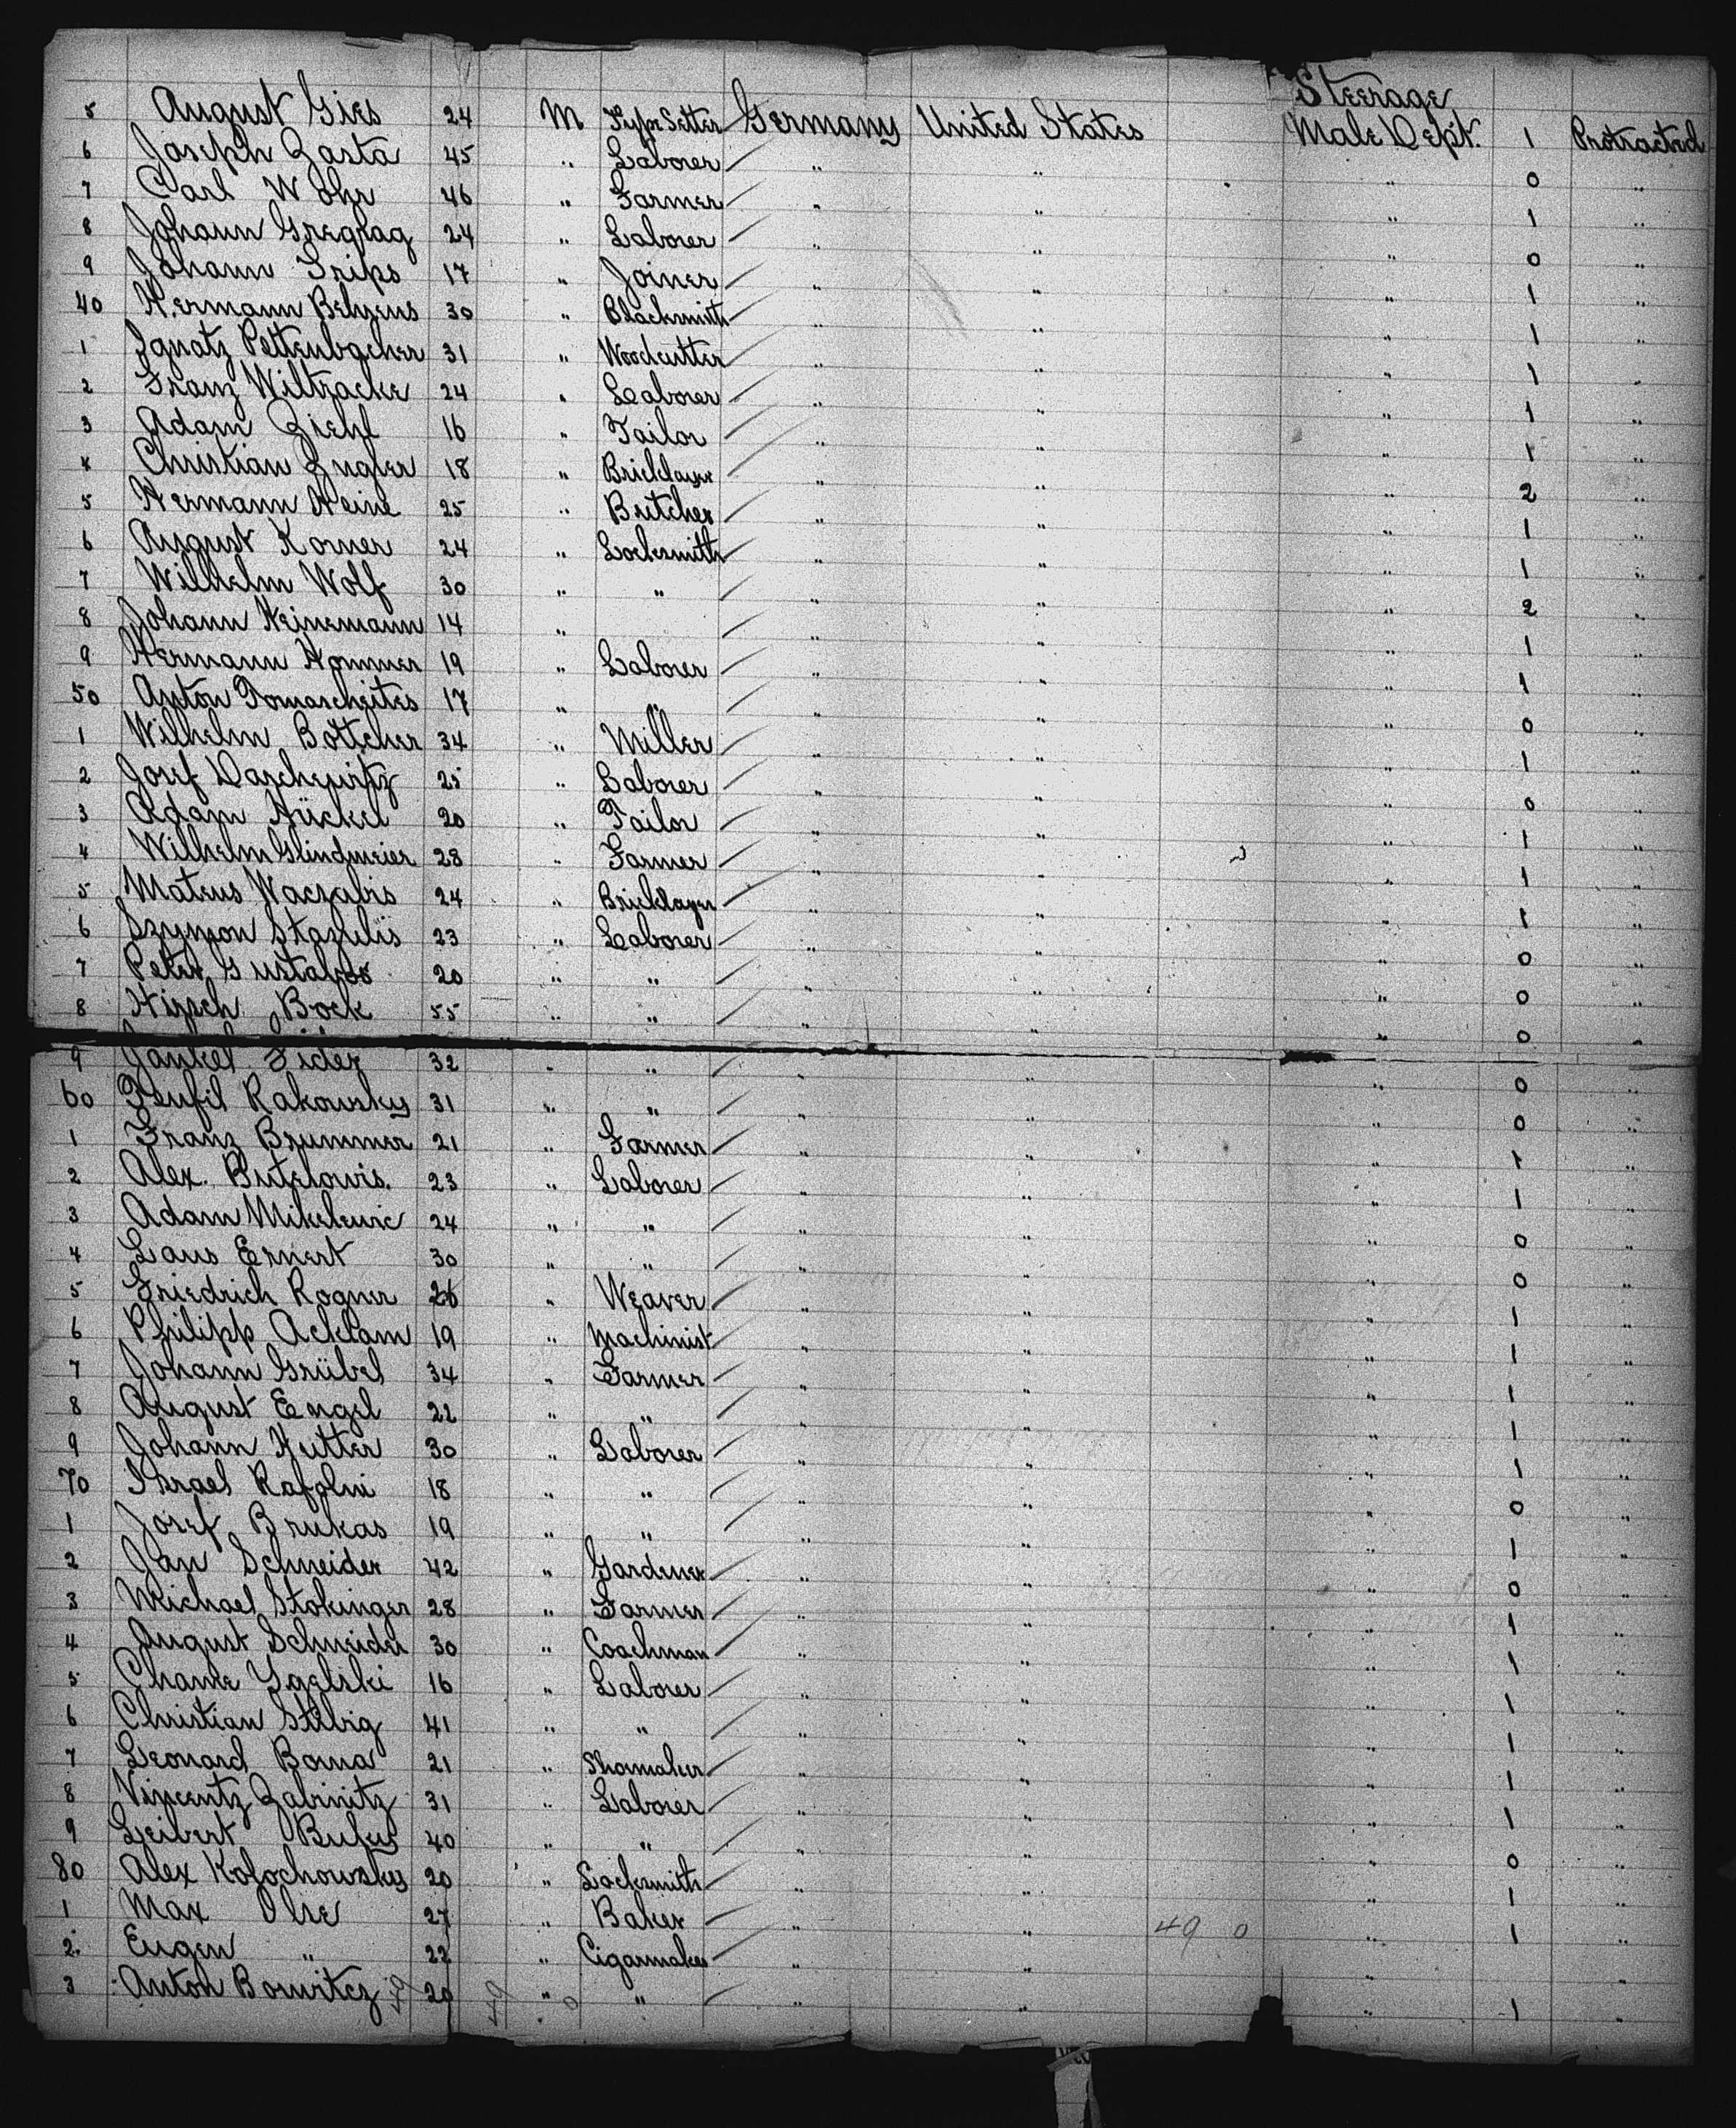 Steerage
5 August Gies 24 M TypeSetter Germany United States Male Dep't. 1 Protracted
6 Joseph Zasta 45 " Laborer " " " 0 "
7 Carl Wohr 46 " Farmer " " " 1 "
8 Johann 24 " Laborer " " " 0 "
9 Johann Frips 17 " Joiner " " " 1 "
40 Hermann Behrens 30 " Blacksmith " " " 1 "
1 Ignatz Pettenbacher 31 " Woodcutter " " " 1 "
2 Franz Wiltzacke 24 " Laborer " " " 1 "
3 Adam Ziehl 16 " Tailor " " " 1 "
4 Christian 18 " Bricklayer " " " 2 "
5 Hermann Heine 25 " Butcher " " " 1 "
6 August Korner 24 " Locksmith " " " 1 "
7 Wilhelm Wolf 30 " " " " " 2 "
8 Johann Heinemann 14 " " " " 1 "
9 Hermann Hommer 19 " Laborer " " " 1 "
50 Anton Tomascheites 17 " " " " " 0 "
1 Wilhelm Bottcher 34 " Miller " " " 1 "
2 Josef Daschewitz 25 " Laborer " " " 0 "
3 Adam Hückel 20 " Tailor " " " 1 "
4 Wilhelm Glindmeier 28 " Farmer " " " 1 "
5 Mateus Waczabis 24 " Bricklayer " " " 1 "
6 Szymon Stazulis 23 " Laborer " " " 0 "
7 Peter 20 " " " " " 0 "
8 Hirsch Bock 55 " " " " " 0 "
9 Jankel Fider 32 " " " " " 0 "
60 Teufil Rakowsky 31 " " " " " 0 "
1 Franz Brummer 21 " Farmer " " " 1 "
2 Alex. Butelowis. 23 " Laborer " " " 1 "
3 Adam Mikelewic 24 " " " " " 0 "
4 Laus Ernert 30 " " " " " 0 "
5 Friedrich Rogner 26 " Weaver " " " 1 "
6 Philipp Acklam 19 " Machinist " " " 1 "
7 Johann Grübel 34 " Farmer " " " 1 "
8 August Engel 22 " " " " " 1 "
9 Johann Hutter 30 " Laborer " " " 1 "
70 Israel 18 " " " " " 0 "
1 Josef Brukas 19 " " " " " 1 "
2 Jan Schneider 42 " Gardener " " " 0 "
3 Michael Stokinger 28 " Farmer " " " 1 "
4 August Schneider 30 " Coachman " " " 1 "
5 Chame Ygelski 16 " Laborer " " " 1 "
6 Christian Stibig 41 " " " " " 1 "
7 Leonard Borna 21 " Shoemaker " " " 1 "
8 Vincentz Zabinitz 31 " Laborer " " " 1 "
9 Leibert 40 " " " " " 0 "
80 Alex Kolochowsky 20 " Locksmith " " " 1 "
1 Max Olse 27 " Baker " " 49 0 " 1 "
2 Eugen " 22 " Cigarmaker " " " "
3 Anton Borwitcz 49 20 49 " 0 " " " " 1 "